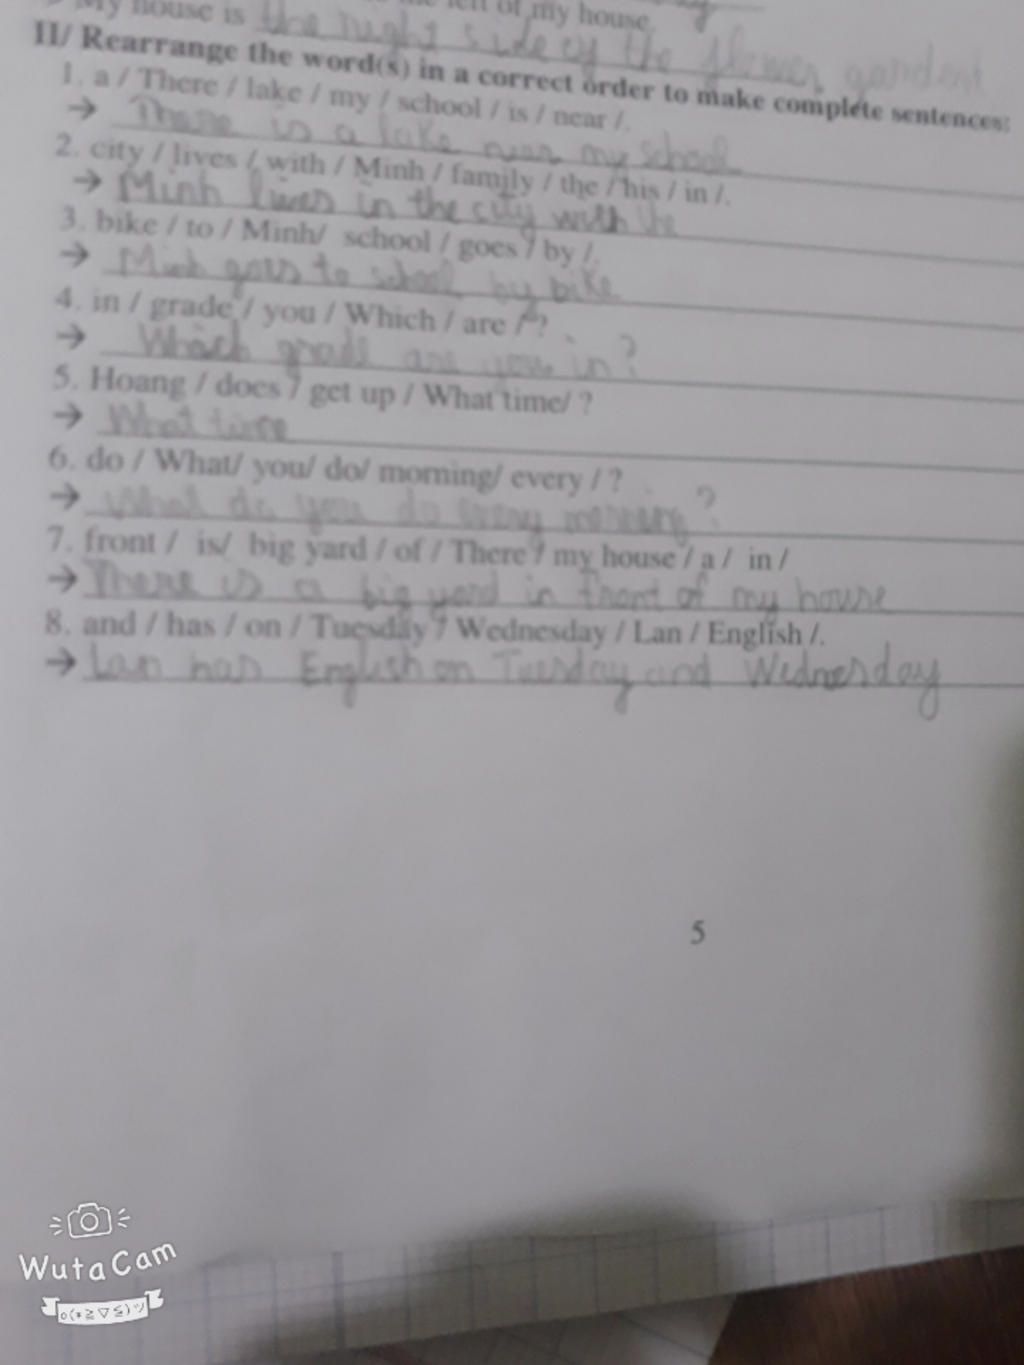 My house is the right side of the flower gardent
left of my house
II/ Rearrange the word(s) in a correct order to make complete sentences:
1. a / There / lake / my / school / is / near /.
→ There is a lake near my school
2. city / lives / with / Minh / family / the / his / in /.
→ Minh lives in the city with the
3. bike / to / Minh/ school / goes / by /.
→ Minh goes to school by bike
4. in / grade / you / Which / are / ?
→ Which grade are you in?
5. Hoang / does / get up / What time/ ?
→ What time
6. do / What/ you/ do/ morning/ every / ?
→ What do you do every morning?
7. front / is/ big yard / of / There / my house / a / in /
→ There is a big yard in front of my house
8. and / has / on / Tuesday / Wednesday / Lan / English /.
→ Lan has English on Tuesday and Wednesday
5
WutaCam